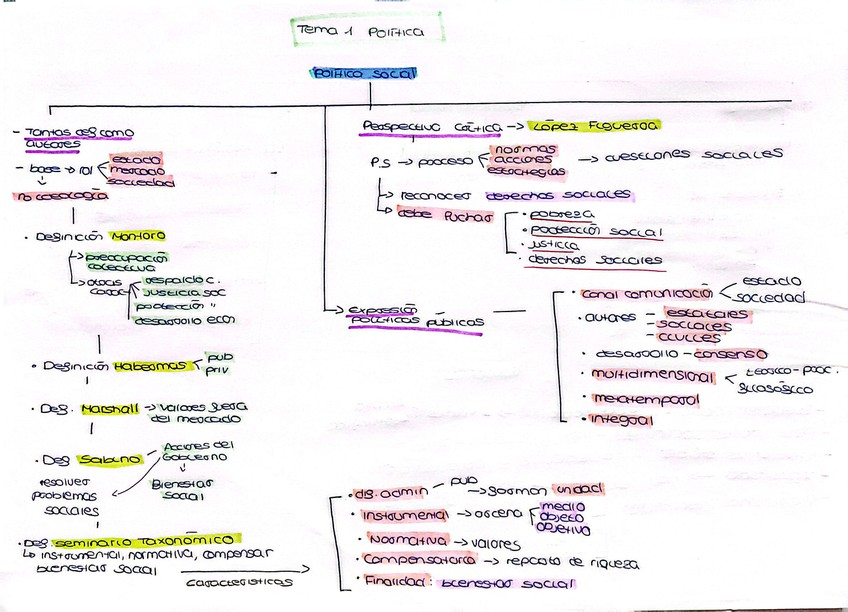 Tema 1 Política
Política social
- Tantas def como
autores
- base → rol
estado
mercado
sociedad
no ideología
· Definición Montoro
preocupación
colectiva
otras
caract
respaldo c.
justicia soc
protección "
desarrollo econ
· Definición Habermas
pub
priv
· Def. Marshall → valores fuera
del mercado
· Def Sabino
Acciones del
Gobierno
resolver
problemas
sociales
Bienestar
social
· Def seminario Taxonómico
↳ instrumental, normativa, compensar
bienestar social
características
Perspectiva crítica → López Figueroa
P.S → proceso
normas
acciones
estrategias
→ cuestiones sociales
→ reconocer derechos sociales
→ debe luchar
· pobreza
· protección social
· justicia
· derechos sociales
Expresión
políticas públicas
· canal comunicación
estado
sociedad
· autores
- estatales
- sociales
- civiles
· desarrollo - consenso
· multidimensional
teórico-prác.
filosófico
· metatemporal
· integral
· dis. admin
pub
→ forman unidad
· Instrumental → ciencia
medio
objeto
objetivo
· Normativa → valores
· Compensatoria → reparto de riqueza
· Finalidad: bienestar social